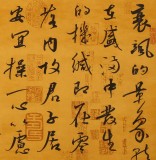 衰颯的景象就
在盛滿中發生
的機緘即在零
落內故君子居
安宜操一心以慮